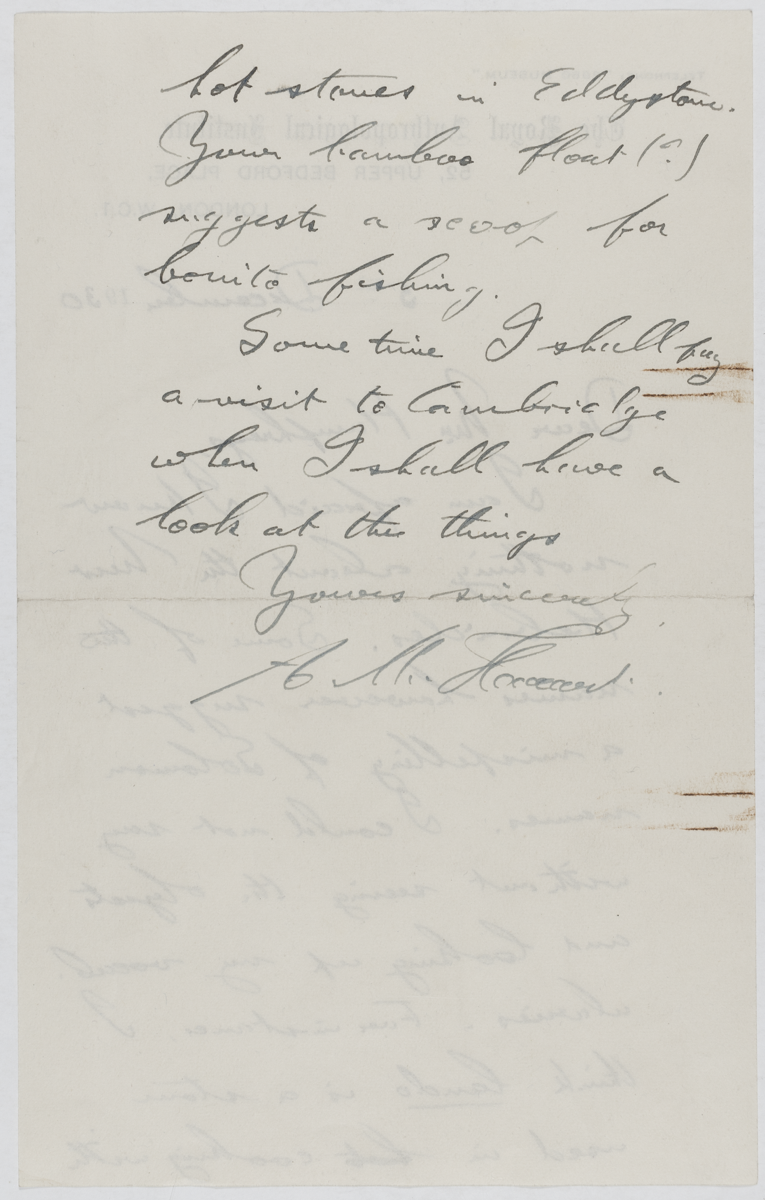 hot stones in Eddystone.
Your bamboo float (?)
suggests a scoop for
bonito fishing.
Some time I shall pay
a visit to Cambridge
when I shall have a
look at the things
Yours sincerely,
A. M. Hocart.